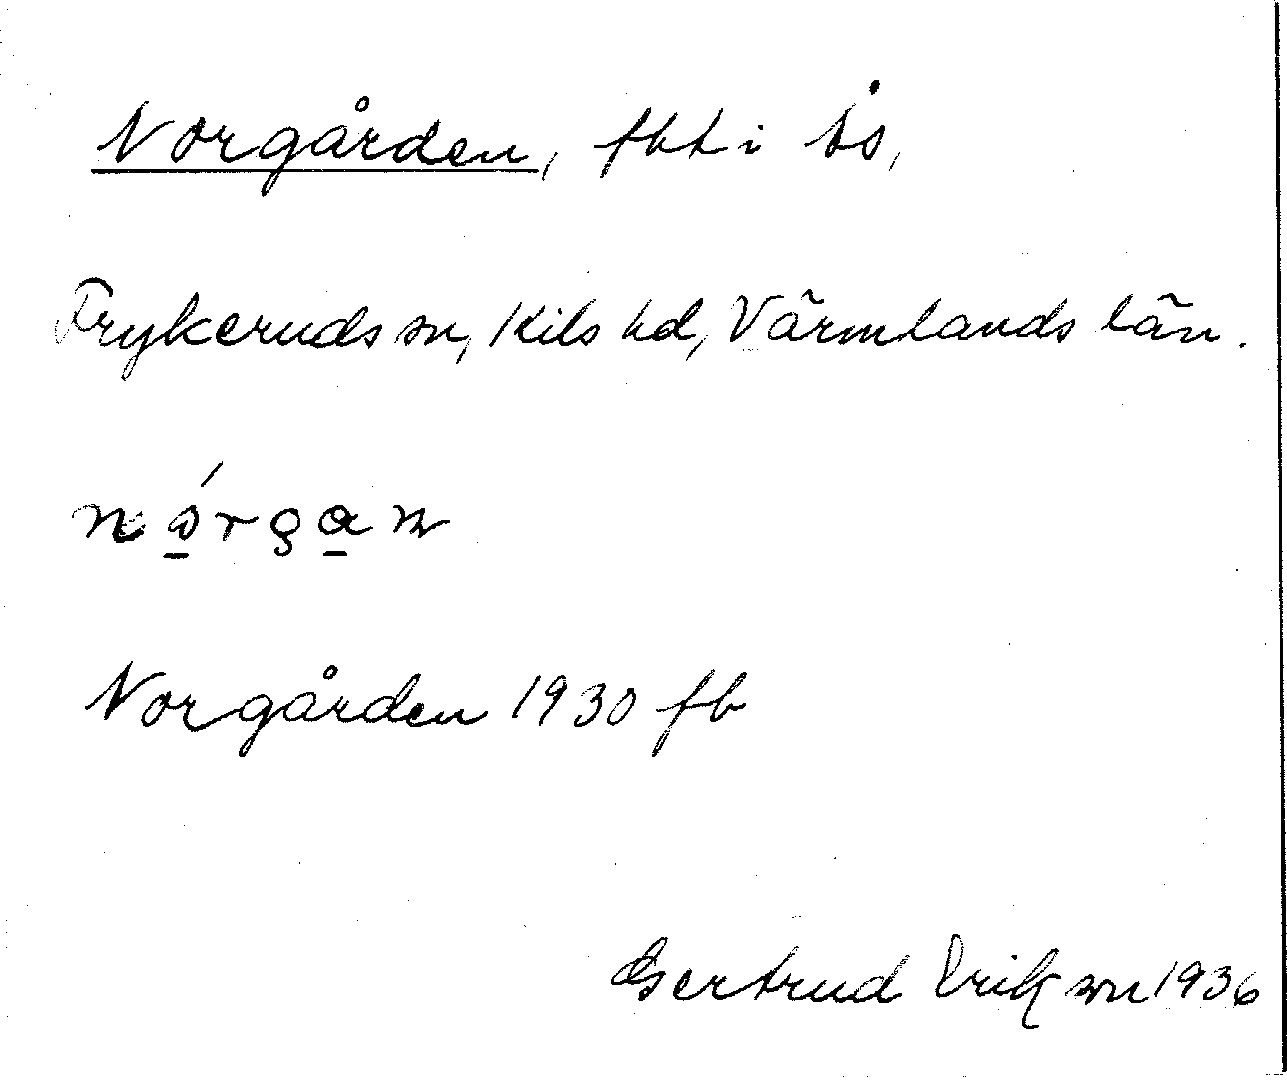 Norgården, fbt i Ås,
Frykeruds sn, Kils hd, Värmlands län.
Norgården 1930 fb
Gertrud Erikson 1936